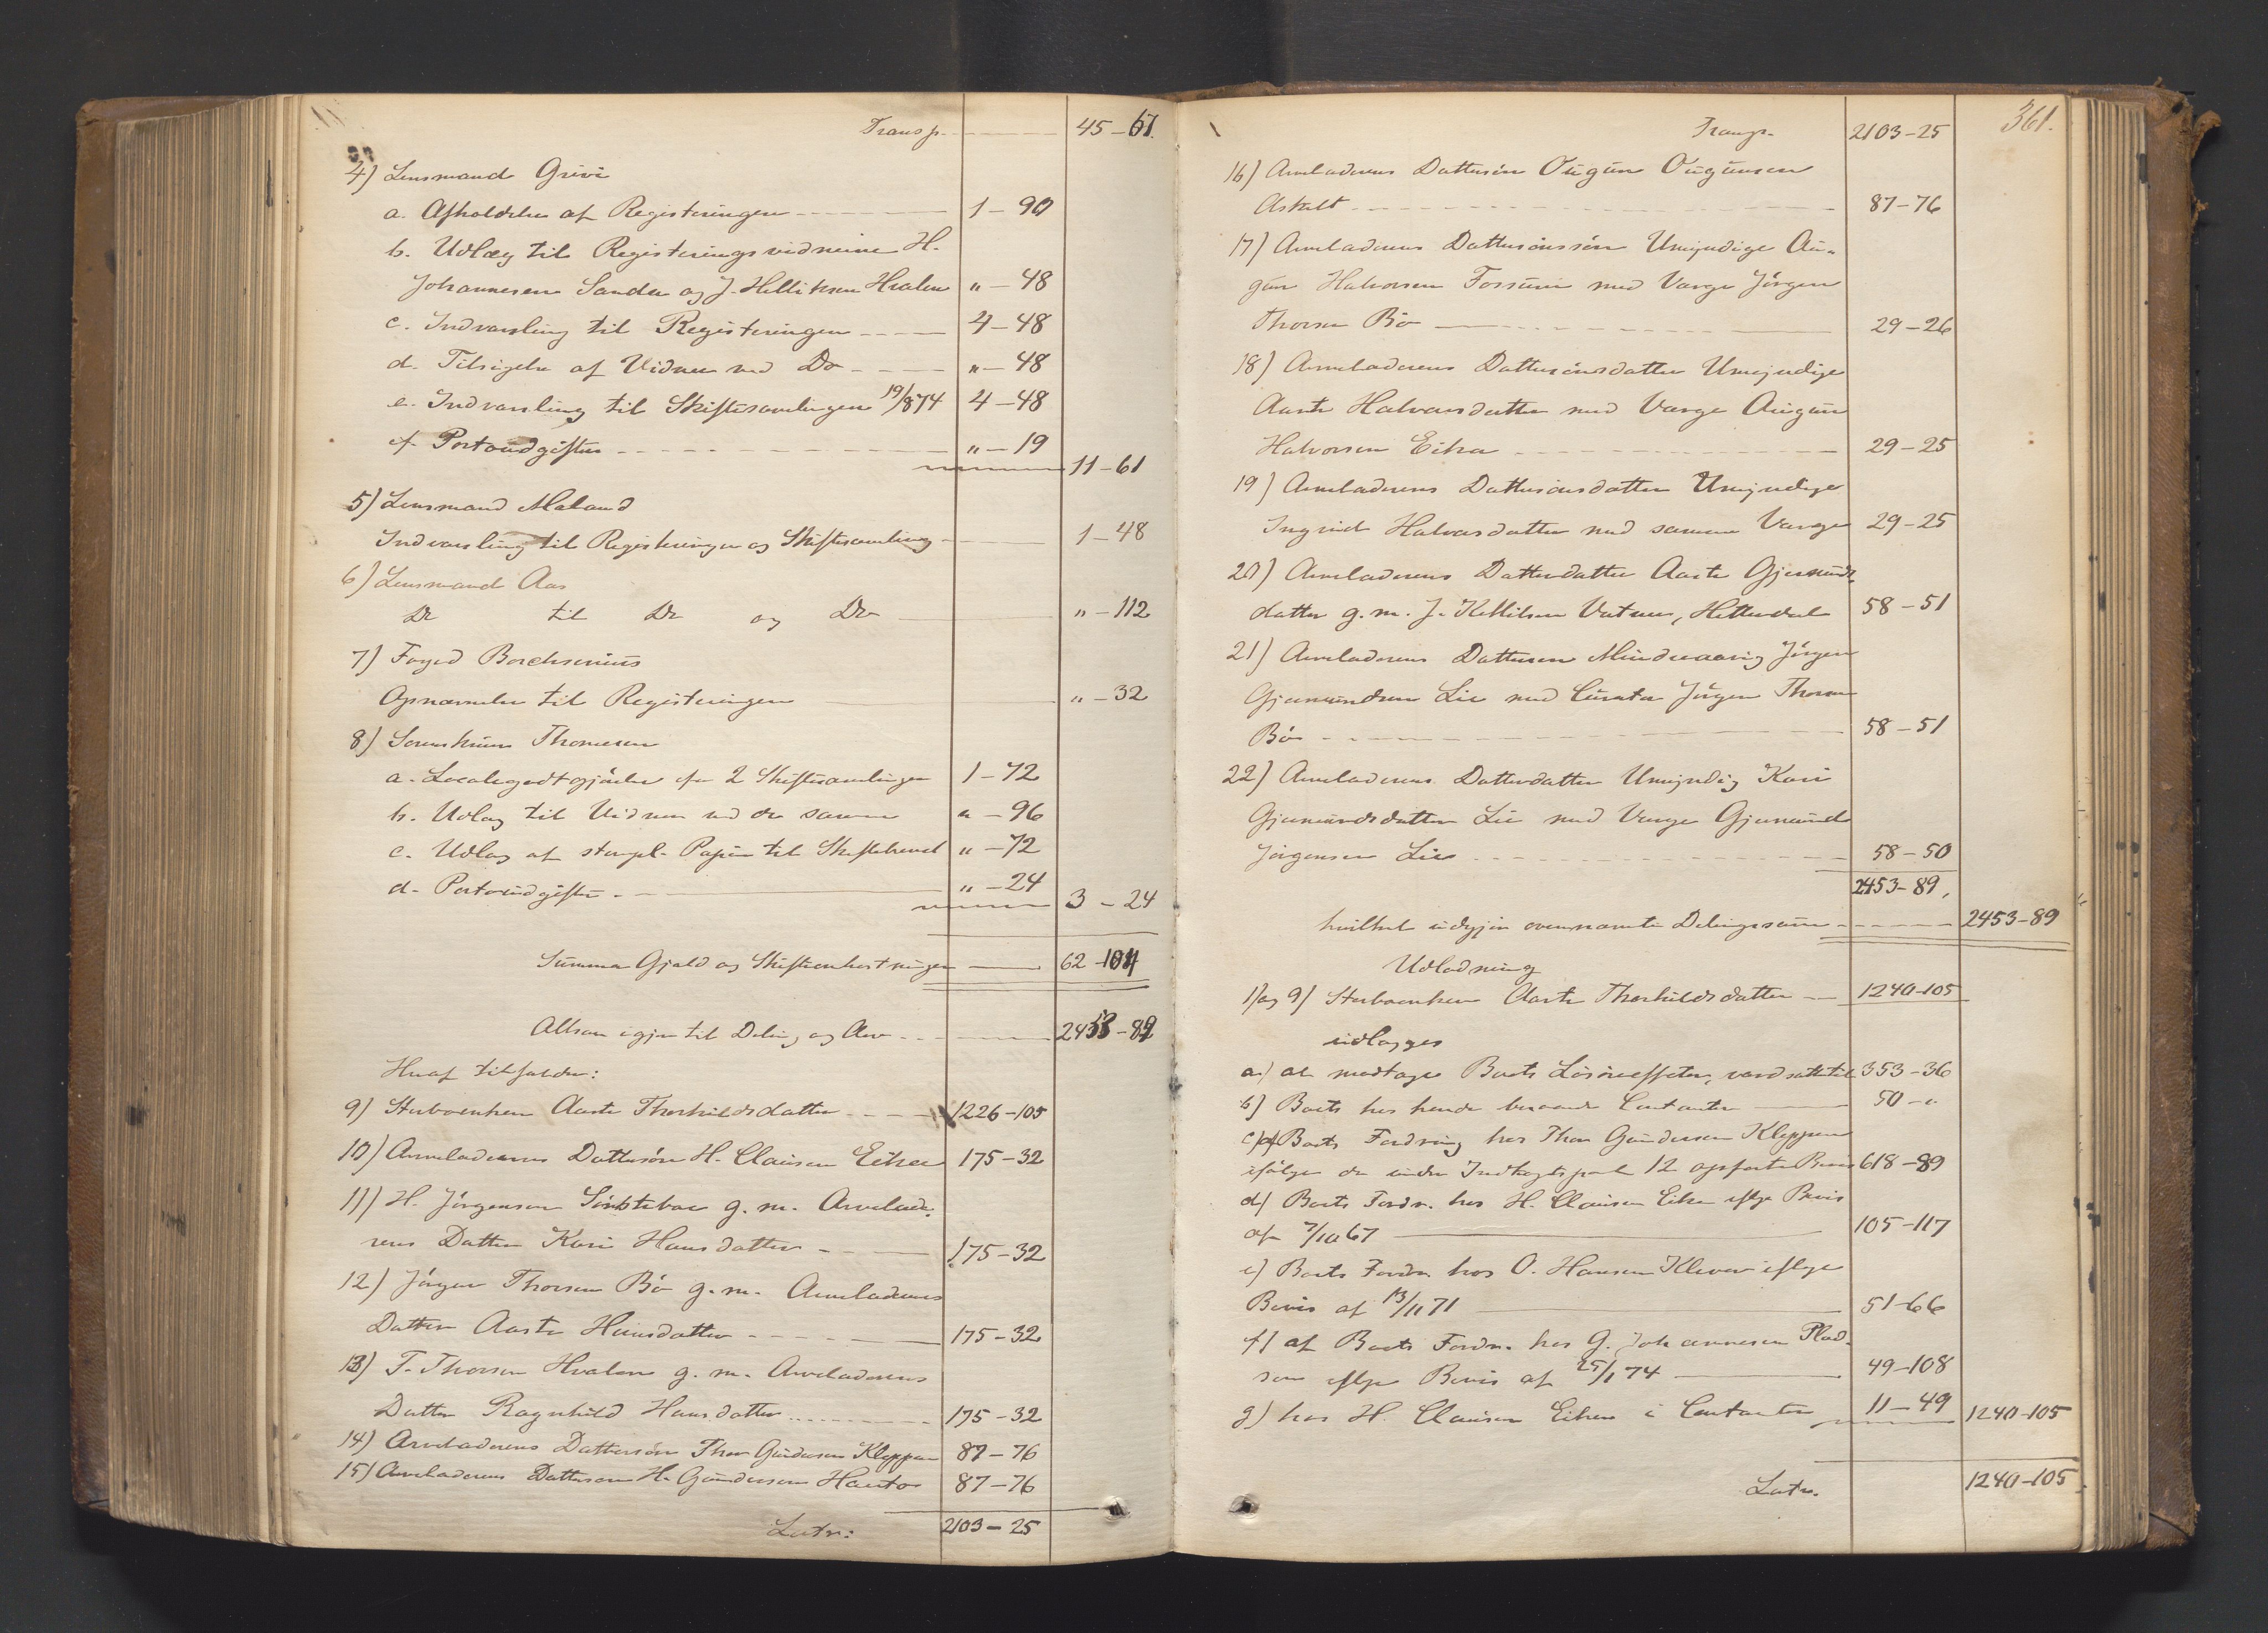 Transp. 45-67.
4) Lensmand Grivi
a. Afholdelse af Registeringen 1-90
b. Udlæg til Registeringsvidnerne H.
Johannesen Sanda og J. Kittilsen Hvalen " -48
c. Indvarsling til Registeringen 4-48
d. Tilsigelse af Vidner ved Do " -48
e. Indvarsling til Skiftesamlingen 19/874 4-48
f. Portoudgifter " -19
11-61
5) Lensmand Maland
Indvarsling til Registeringen og Skiftesamling 1-48
6) Lensmand Aas
Do til Do og Do " -112
7) Foged Borchsenius
Opnævnelse til Registeringen " -32
8) Sorenskriver Thomesen
a. Localegodtgjörelse for 2 Skiftesamlinger 1-72
b. Udlæg til Vidner ved de samme " -96
c. Udlæg af stempl. Papir til Skiftebrevet " -72
d. Portoudgifter " -24
3-24
Summa Gjæld og Skifteomkostninger 62-104
Altsaa igjen til Deling og Arv 2453-89
Heraf tilfalder:
9) Sterboenken Aaste Thorkildsdatter 1226-105
10) Arveladerens Dattersön H. Clausen Eika 175-32
11) H. Jörgensen g. m. Arvelade-
rens Datter Kari Hansdatter 175-32
12) Jörgen Thorsen Bö g. m. Arveladerens
Datter Aaste Hansdatter 175-32
13) T. Thorsen Hvalen g. m. Arveladerens
Datter Ragnhild Hansdatter 175-32
14) Arveladerens Dattersön Thor Gundersen Kleppen 87-76
15) Arveladerens Dattersön H. Gundersen Hauto 87-76
Latr: 2103-25
361.
Transp. 2103-25
16) Arveladerens Dattersön Ougun Ougunsen
87-76
17) Arveladerens Dattersönssön Umyndige Au-
gun Halvorsen Fossum med Værge Jörgen
Thorsen Bö 29-26
18) Arveladerens Dattersönsdatter Umyndige
Aaste Halvorsdatter med Værge Augun
Halvorsen Eika 29-25
19) Arveladerens Dattersönsdatter Umyndige
Ingrid Halvorsdatter med samme Værge 29-25
20) Arveladerens Datterdatter Aaste Gjermunds-
datter g. m. J. Kittilsen Vatnar, Hitterdal 58-51
21) Arveladerens Dattersön Mindreaarig Jörgen
Gjermundsen Lie med Curator Jörgen Thorsen
Bö 58-51
22) Arveladerens Datterdatter Umyndig Kari
Gjermundsdatter Lie med Værge Gjermund
Jörgensen Lie 58-50
2453-89,
hvilket udgjör ovennævnte Delingssum 2453-89
Udlodning
1) og 9) Sterboenken Aaste Thorkildsdatter 1240-105
udlægges
a.) at modtage Boets Lösöreeffecter, værdsatte til 353-36
b) Boets hos hende beroende Contanter 50-"
c) af Boets Fordring hos Thor Gundersen Kleppen
ifölge de under Indtægtspost 12 opförte Bevis 618-89
d) Boets Fordr. hos H. Clausen Eika iflge Bevis
af 7/10 67 105-117
e) Boets Fordr. hos O. Hansen Klever iflge
Bevis af 13/11 71 51-66
f) af Boets Fordr. hos G. Johannesen Plad-
sen iflge Bevis af 25/1 74 49-108
g) hos H. Clausen Eika i Contanter 11-49 1240-105
Latr. 1240-105